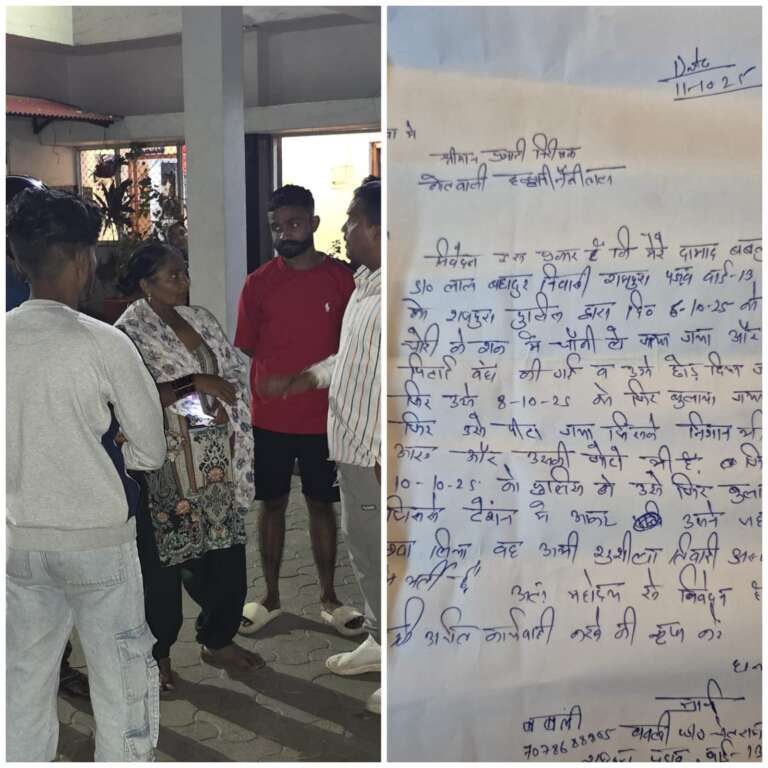 Date
11-10-25
श्रीमान प्रभारी निरीक्षक
कोतवाली हल्द्वानी नैनीताल
निवेदन इस प्रकार है कि मेरे दामाद
S/o लाल बहादुर निवासी राजपुरा पड़ाव वार्ड-13
को राजपुरा पुलिस द्वारा दि० 6-10-25 को
चोरी के शक में चौकी ले जाया गया और
पिटाई की गई व उसे छोड़ दिया
फिर उसे 8-10-25 को फिर बुलाया गया
फिर उसे पीटा गया जिसके निशान भी
और उसकी फोटो भी है
10-10-25 को पुलिस ने उसे फिर
जिसके टेंशन में आकर उसने
लिया वह अभी सुशीला तिवारी
में भर्ती है
अतः महोदय से निवेदन है
की उचित कार्यवाही करने की कृपा करे
7078688365
पड़ाव वार्ड-13